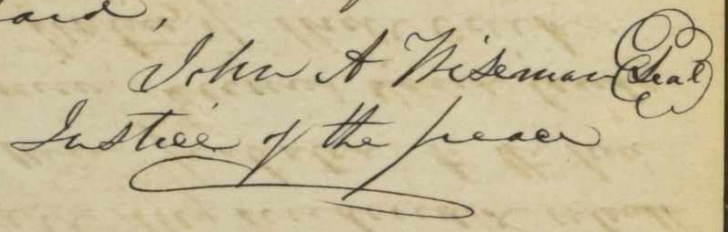 John A Wiseman Seal
Justice of the peace